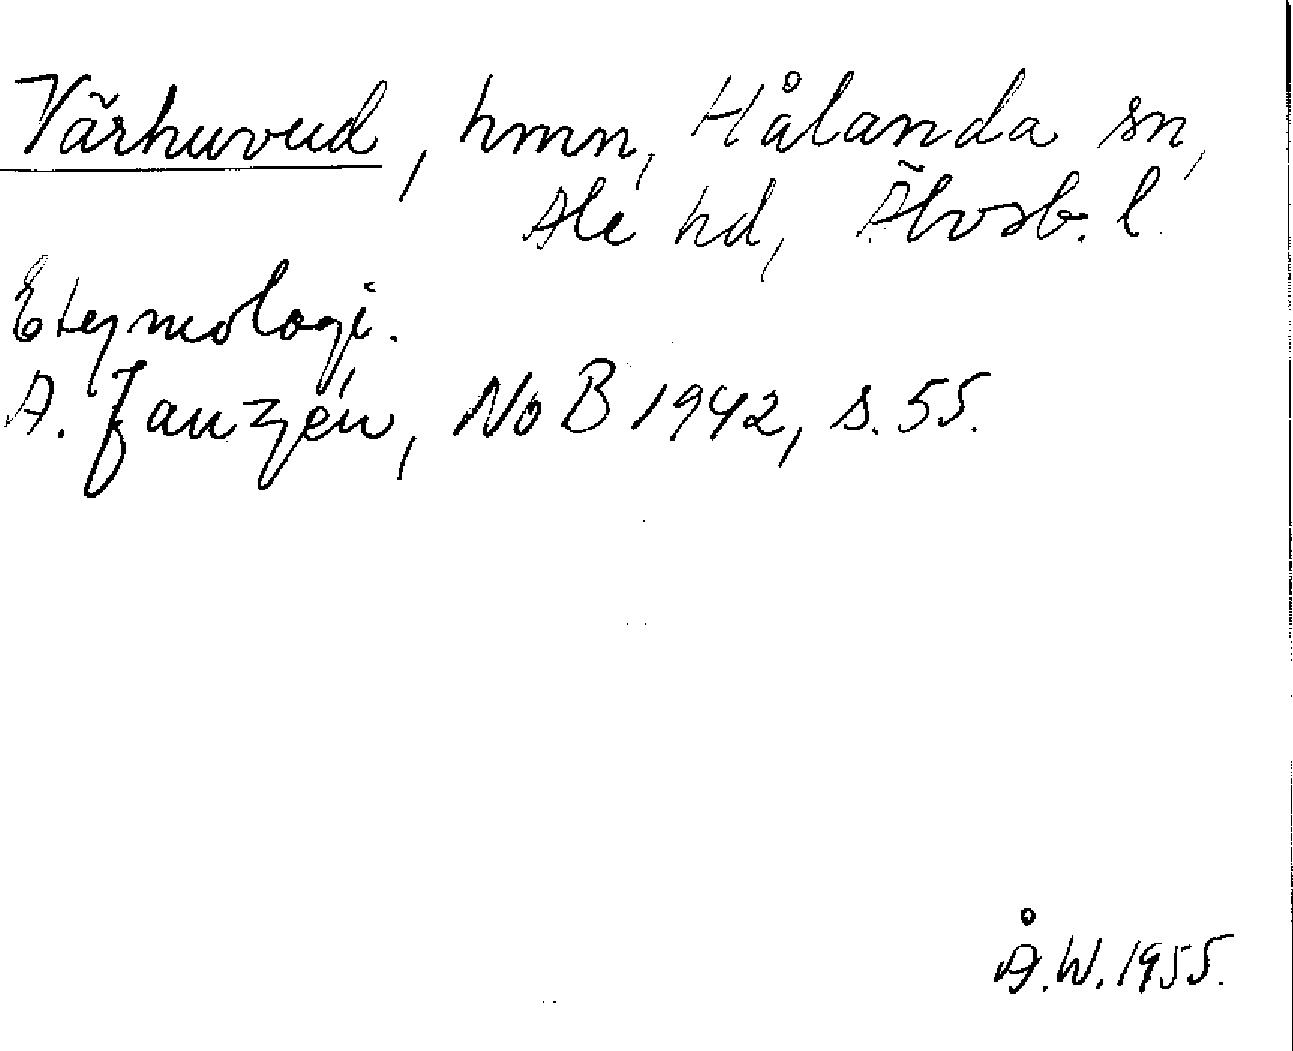 Värhuvud, hmn, Hålanda sn,
Ale hd, Älvsb. l.
Etymologi.
A. Janzén, NoB 1942, s. 55.
Å.W. 1955.